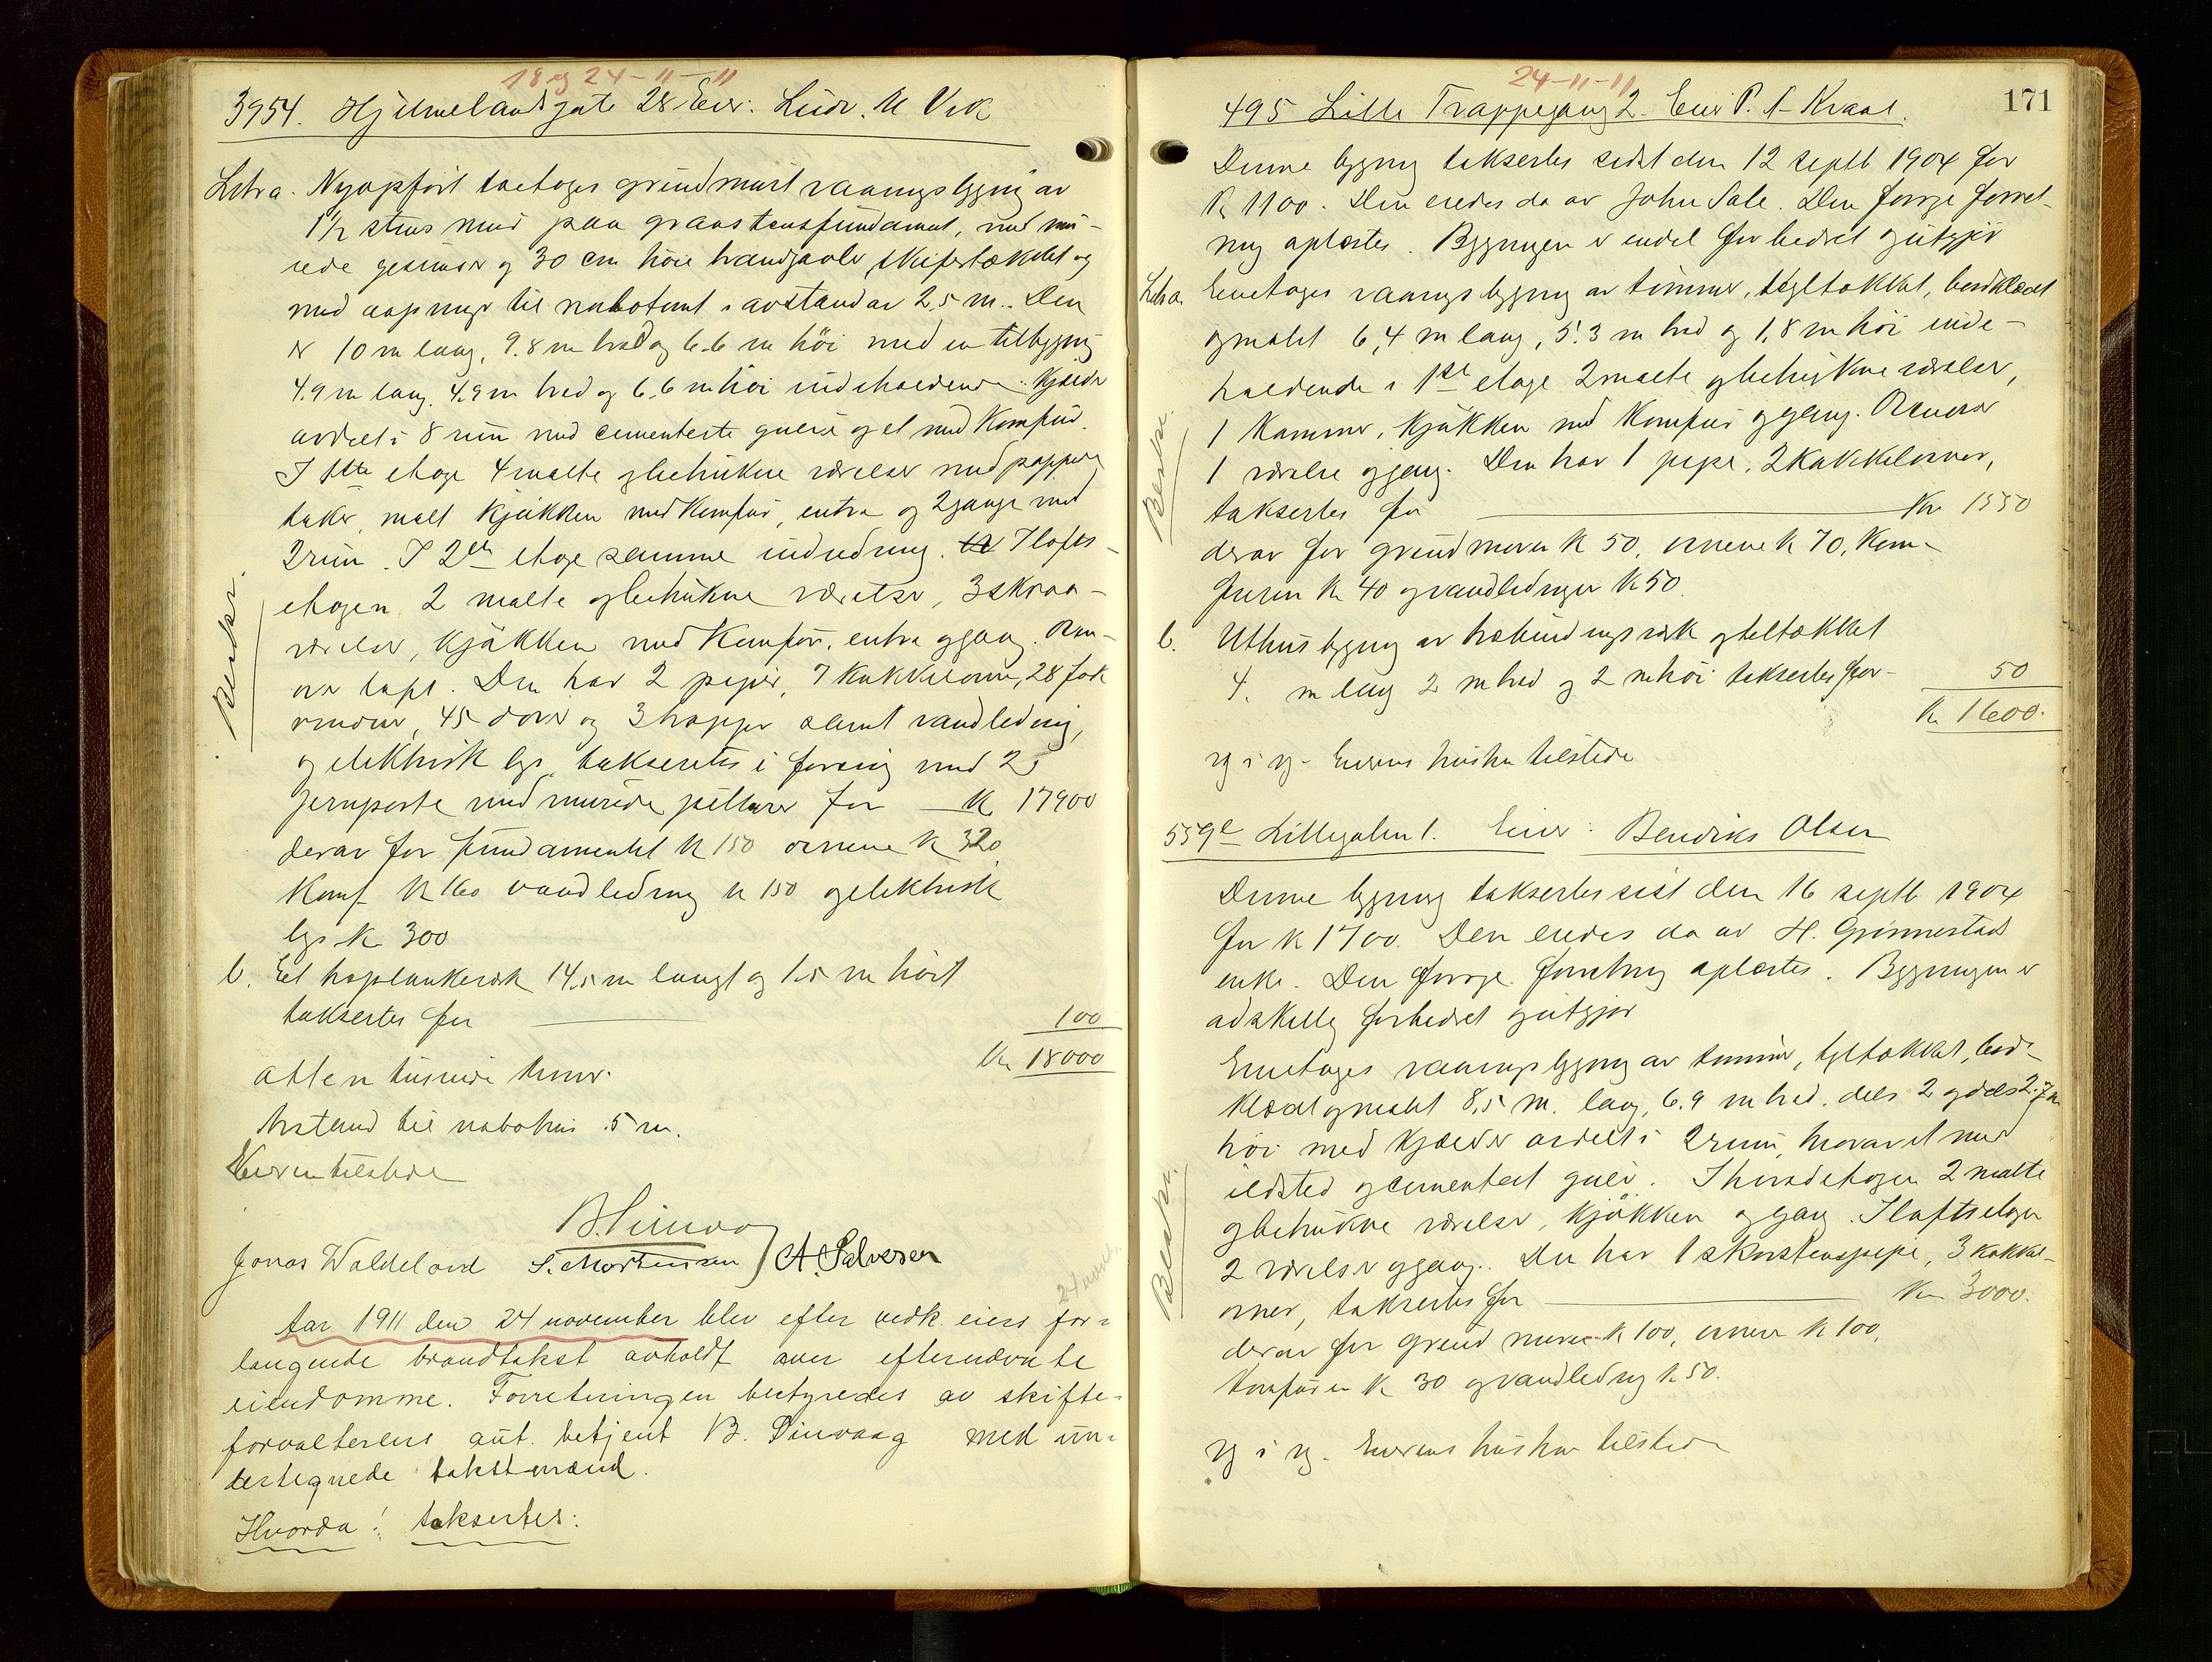 18 og 24-11-11
3954. Hjelmelandsgate 28 Eier: Ludv. M Vik
Litra. Nyopført toetages grundmurt vaaningsbygning av
1½ stens mur paa graastensfundament, med mu-
rede gesimser og 30 cm høie brandgavle, skifertækket og
med aapninger til nabotomt i avstand av 2,5 m. Den
er 10 m lang, 9.8 m bred og 6.6 m høi med en tilbygning
4.9 m lang. 4.9 m bred og 6,6 m høi indeholdende: Kjælder
avdelt i 8 rum med cementerte gulve og et med Komfur.
I 1ste etage 4 malte og betrukne værelser med pappen
taker, malt kjøkken med Komfur, entre og 2 gange med
2 rum. I 2den etage samme indredning. I lofts-
etagen 2 malte og betrukne værelser, 3 skraa-
værelser, kjøkken med Komfur, entre og gang. Ovn-
over løpt. Den har 2 piper, 7 Kakkelovne, 28 fak
vinduer, 45 døre og 3 trapper samt vandledning,
og elektrisk lys, taksertes i forening med 25
Jernporte med murede pillarer for — K 17900
derav for fundamentet K 150 ovnene K 320
Komf K 160 vandledning K 150 og elektrisk
lys K 300
b. Et træplankeverk 14,5 m langt og 1.5 m høit
taksertes for 100
Kr 18000
atten tusinde kroner.
Avstand til nabohus 5 m.
Eieren tilstede
Beskr.
B. Sinvaag
Jonas Waldeland S. Mortensen A. Salvesen
24 nov.
Aar 1911 den 24 november blev efter vedk. eiers for=
langende brandtakst avholdt over efternævnte
eiendomme. Forretningen bestyredes av skifte=
forvalterens aut. betjent B. Sinvaag med un=
dertegnede takstmænd.
Hvorda! taksertes:
24-11-11
171
495 Lille Trappegang 2. Eier P. A. Kvaal.
Denne bygning taksertes sidst den 12 septb 1904 for
K 1100. Den eiedes da av John Sale. Den forrige forret-
ning oplæstes. Bygningen er endel forbedret og utgjør
Litra. Enetages vaaningsbygning av tømmer, tegltækket, bordklædt
og malet 6,4 m lang, 5.3 m bred og 1,8 m høi inde-
holdende i 1ste etage 2 malte og betrukne værelser,
1 Kammer, kjøkken med Komfur og gang. Ovenover
1 værelse og gang. Den har 1 pipe, 2 Kakkelovner,
taksertes for Kr 1550
derav for grundmuren K 50, ovnene K 70, Kom-
furen K 40 og vandledningen K 50.
b. Uthusbygning av træbindingsverk og teltækket
4. m lang 2 m bred og 2 m høi taksertes for- 50
Kr 1600.
Beskr.
rg i rg. Eierens hustru tilstede
559e Lillegaten 1. Eier: Bendiks Olsen
Denne bygning taksertes sist den 16 septb 1904
for K 1700. Den eiedes da av H. Grønnestads
enke. Den forrige forretning oplæstes. Bygningen er
adskillig forbedret og utgjør
Enetages vaaningsbygning av tømmer, tegltækket, bord-
klædt og malet 8,5 m. lang, 6.9 m bred. dels 2 og dels 2.7 m
høi med Kjælder avdelt i 2 rum, hvorav et med
ildsted og cementert gulv. I hovedetagen 2 malte
og betrukne værelser, kjøkken og gang. I loftsetagen
2 værelser og gang. Den har 1 skorstenspipe, 3 kakkel-
ovner, taksertes for Kr 3000.
derav for grundmuren K 100, ovnene K 100,
Komfuren K 30 og vandledning K 50.
Beskr.
rg i rg. Eierens hustru tilstede